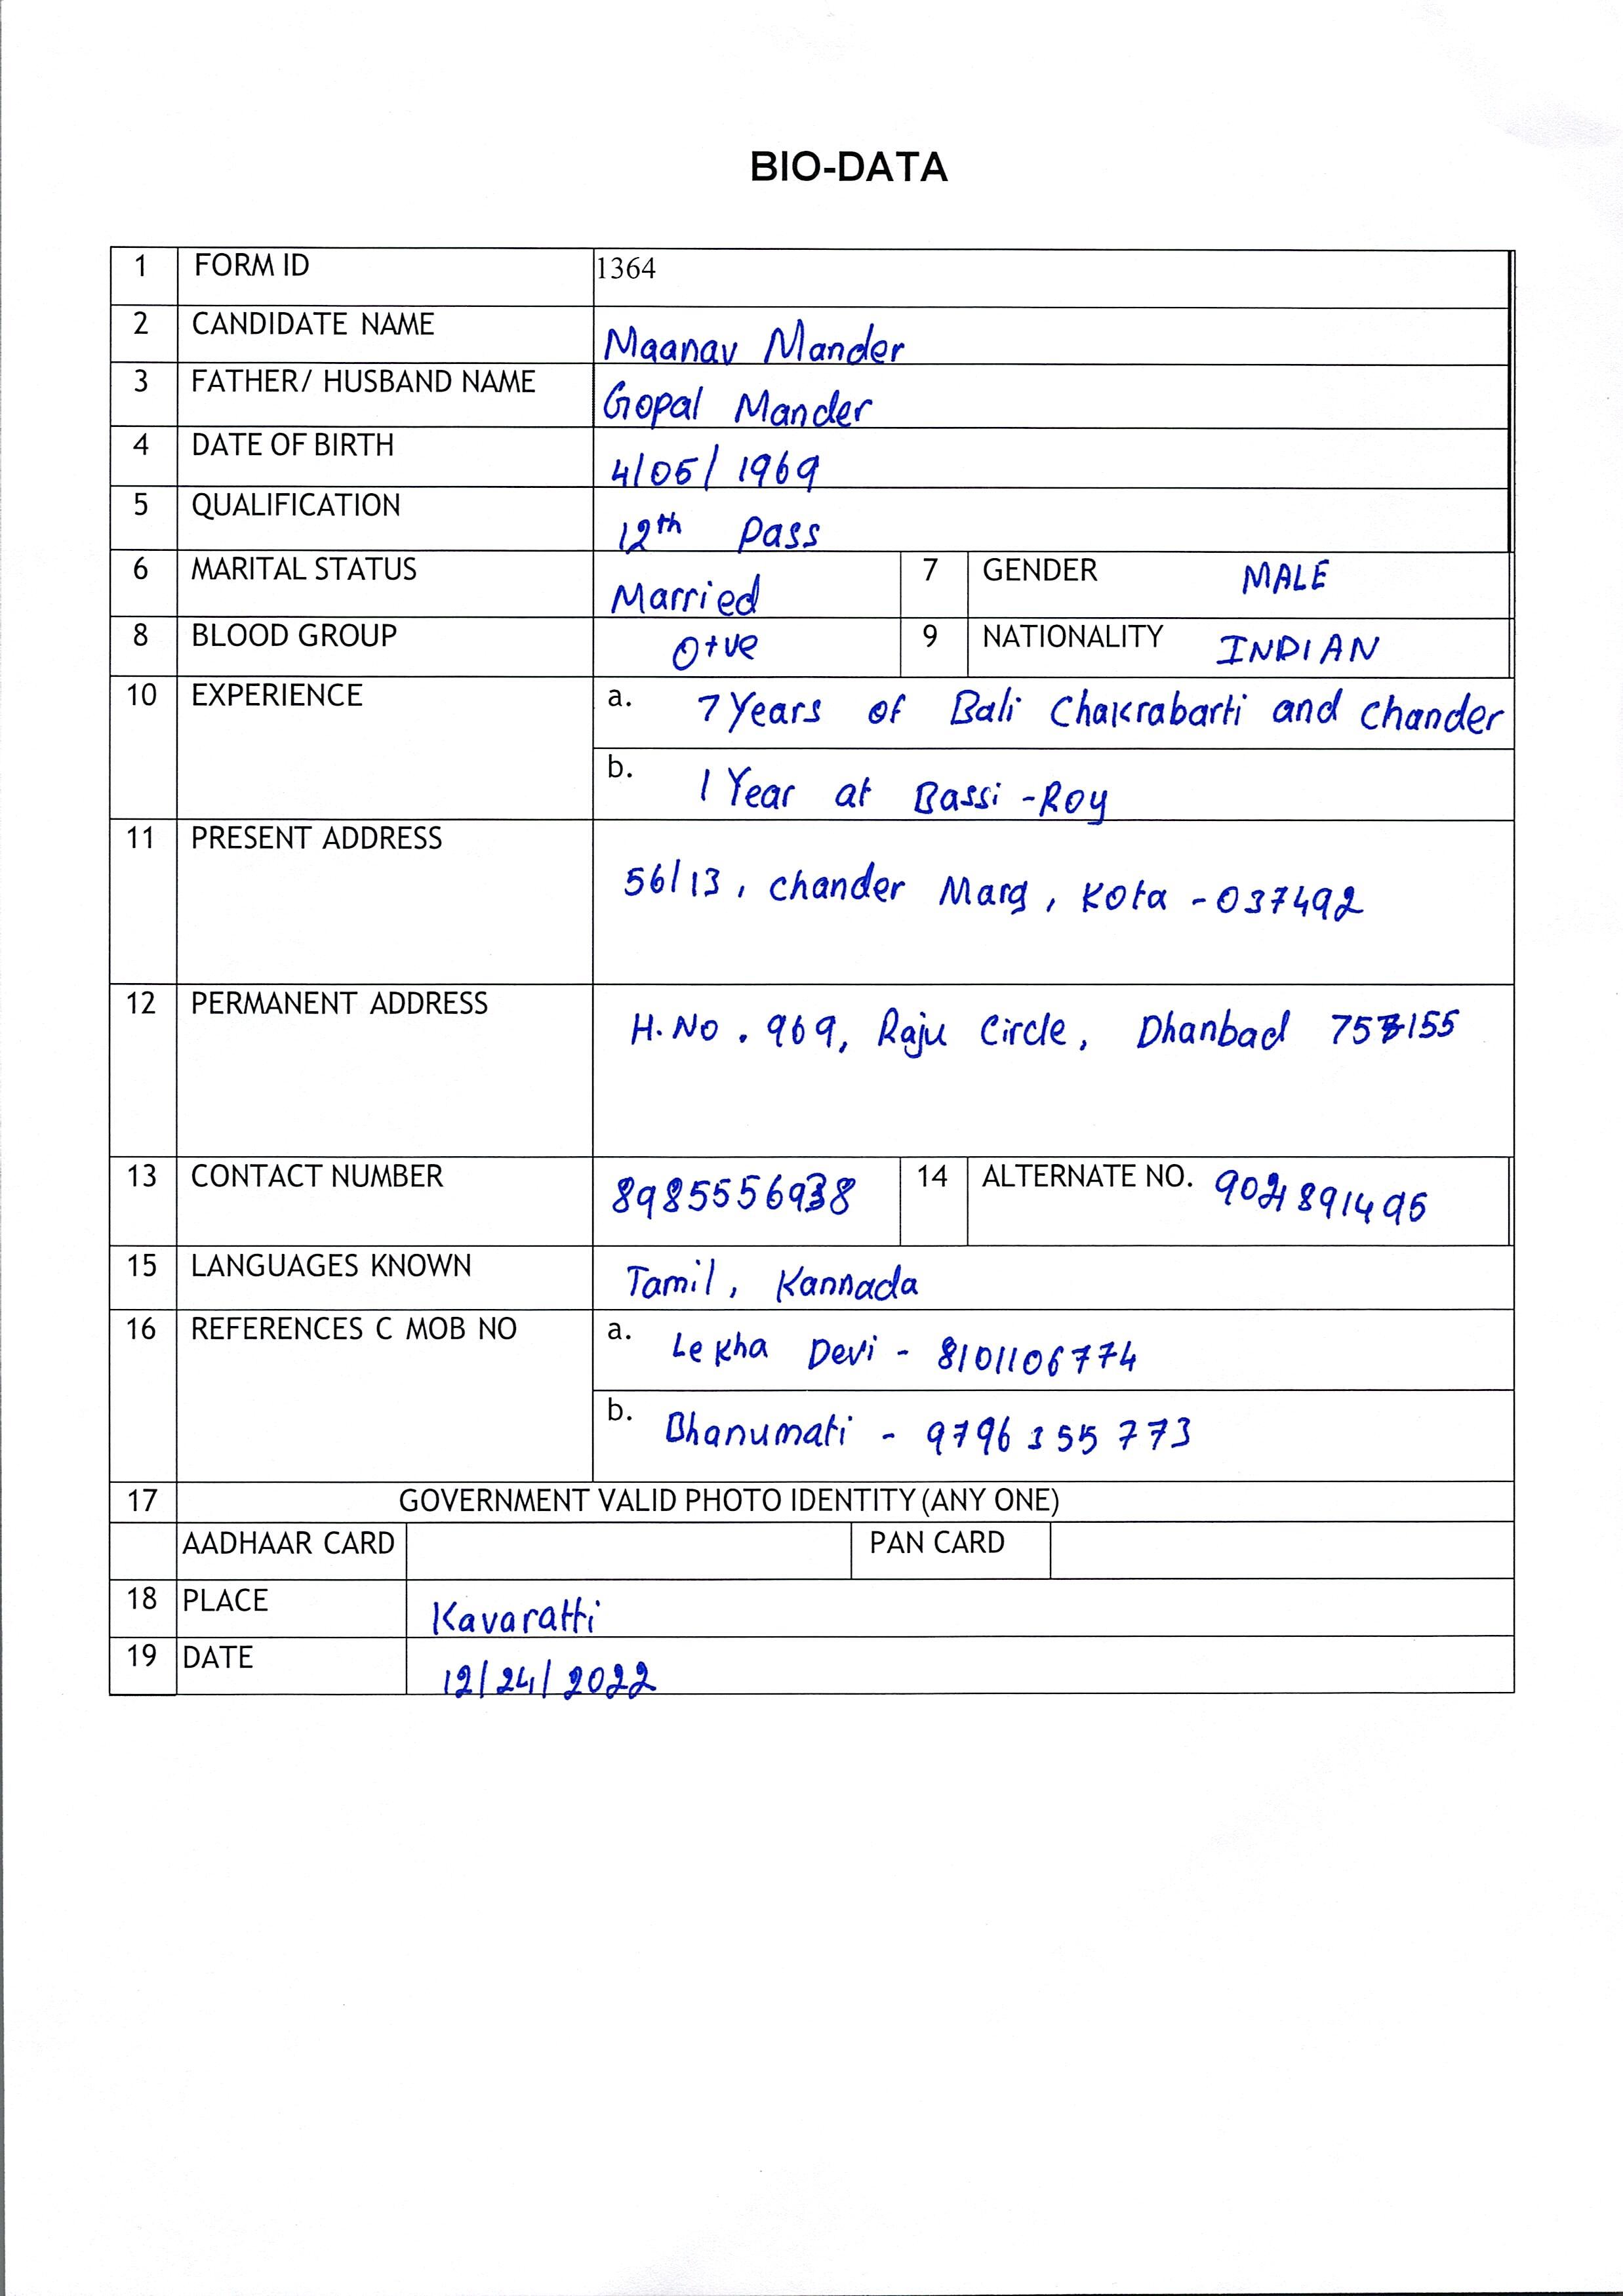 BIO-DATA
1 FORM ID 1364
2 CANDIDATE NAME Maanav Mander
3 FATHER/ HUSBAND NAME Gopal Mander
4 DATE OF BIRTH 4/05/1969
5 QUALIFICATION 12th Pass
6 MARITAL STATUS Married 7 GENDER MALE
8 BLOOD GROUP O+ve 9 NATIONALITY INDIAN
10 EXPERIENCE a. 7 Years of Bali Chakrabarti and Chander
b. 1 Year at Bassi-Roy
11 PRESENT ADDRESS 56/13, Chander Marg, Kota - 037492
12 PERMANENT ADDRESS H.No. 969, Raju Circle, Dhanbad
13 CONTACT NUMBER 8985556938 14 ALTERNATE NO.
15 LANGUAGES KNOWN Tamil, Kannada
16 REFERENCES C MOB NO a. Lekha Devi - 8101106774
b. Bhanumati - 9796355773
17 GOVERNMENT VALID PHOTO IDENTITY (ANY ONE)
AADHAAR CARD PAN CARD
18 PLACE Kavaratti
19 DATE 12/24/2022